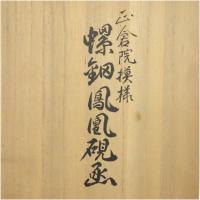 正倉院模様
螺鈿鳳凰硯函